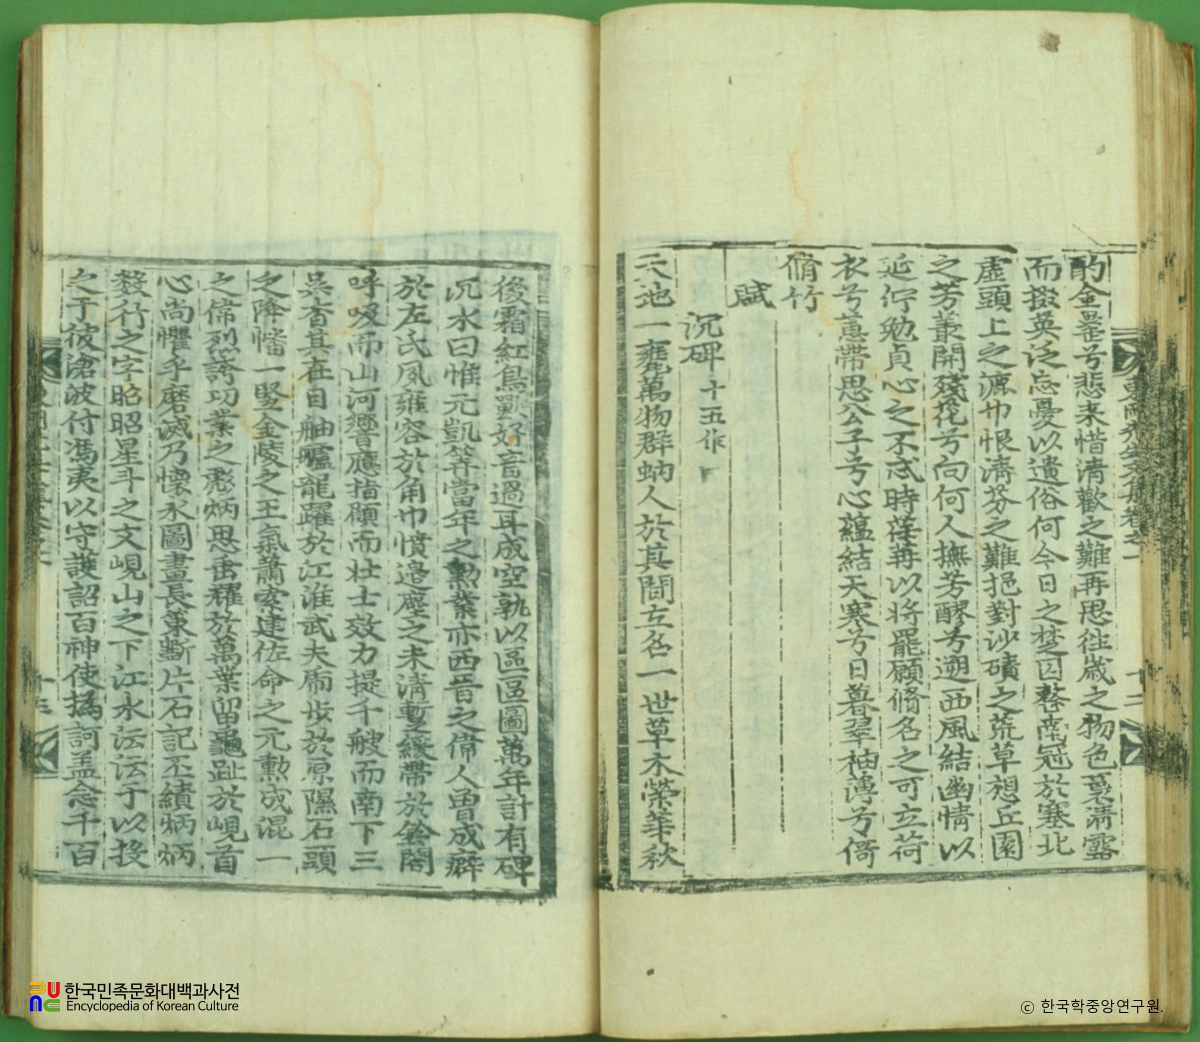 酌金罍兮悲来惜清歡之難再思徃歲之物色裛清露
而掇英泛忘憂以遺俗何今日之楚囚聱南冠於塞北
虛頭上之漉巾恨濟芬之難挹對沙磧之荒草想丘園
之芳叢開殘花兮向何人撫芳醪兮遡西風結幽情以
延佇勉貞心之不忒時荏苒以將罷願脩名之可立荷
衣兮蕙帶思公子兮心蘊結天寒兮日暮翠袖薄兮倚
脩竹
賦
沉碑 十五作
天池一甕萬物群蚋人於其間立名一世草木榮華秋
後霜紅鳥獸好音過耳成空孰以區區圖萬年計有碑
沉水曰惟元凱筭當年之勲業亦西晋之偉人曾成癖
於左氏夙雍容於角巾憤邉塵之未清蹔緩帶於鈴閤
呼吸而山河響應指顧而壮士效力提千艘而南下三
吳杳其在目舳艫龍躍於江淮武夫廊步於原隰石頭
之降幡一竪金陵之王氣蕭索建佐命之元勲成混一
之偉烈誇功業之彪炳思垂耀於萬葉留龜趾於峴首
心尚懼乎磨滅乃懷永圖畫長策斲片石記丕績炳炳
之字昭昭星斗之文峴山之下江水沄沄于以投
之于彼滄波付馮夷以守護詔百神使撝訶盖念千百
한국민족문화대백과사전
Encyclopedia of Korean Culture
ⓒ 한국학중앙연구원.